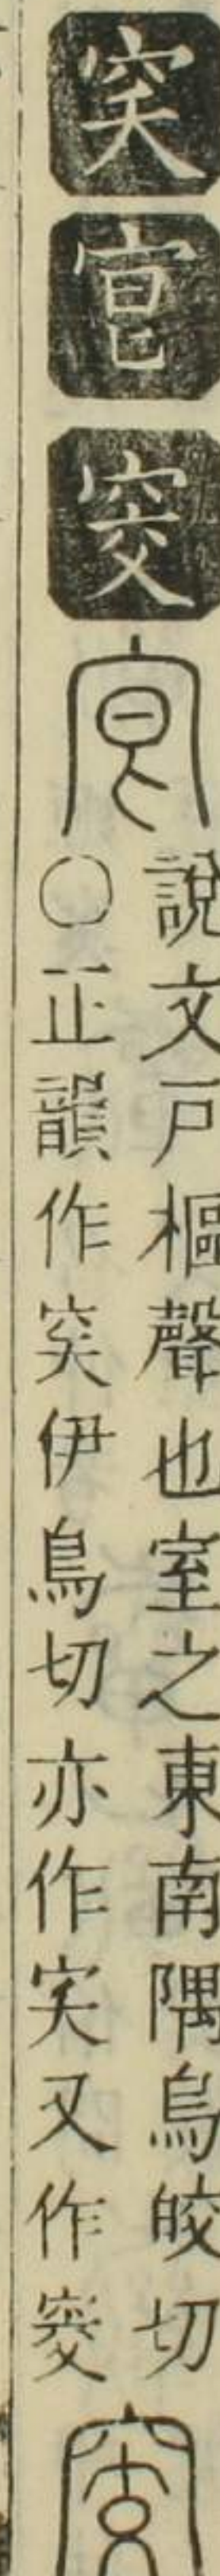 窔
窅
窔
說文戶樞聲也室之東南隅烏皎切
○正韻作窔伊鳥切亦作宎又作窔